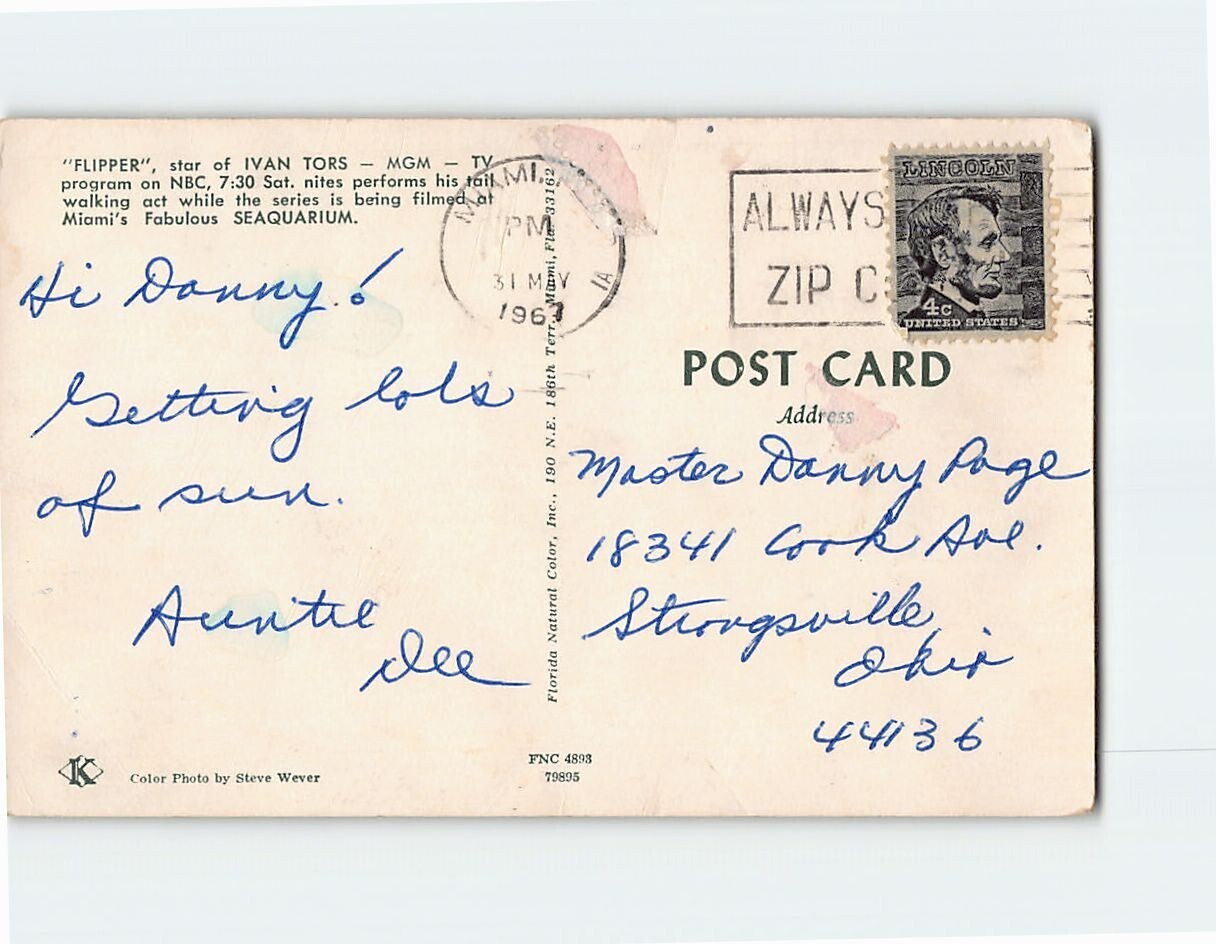 "FLIPPER", star of IVAN TORS — MGM — TV
program on NBC, 7:30 Sat. nites performs his tail
walking act while the series is being filmed at
Miami's Fabulous SEAQUARIUM.
Hi Danny!
Getting lots
of sun.
Auntie
Dee
K
Color Photo by Steve Wever
FNC 4893
79895
Florida Natural Color, Inc., 190 N.E. 186th Terr., Miami, Fla. 33162
MIAMI,
PM
31 MAY
1967
IA
ALWAYS
ZIP C
LINCOLN
4c
UNITED STATES
POST CARD
Address
Master Danny Page
18341 Cook Ave.
Strongsville,
Ohio
44136